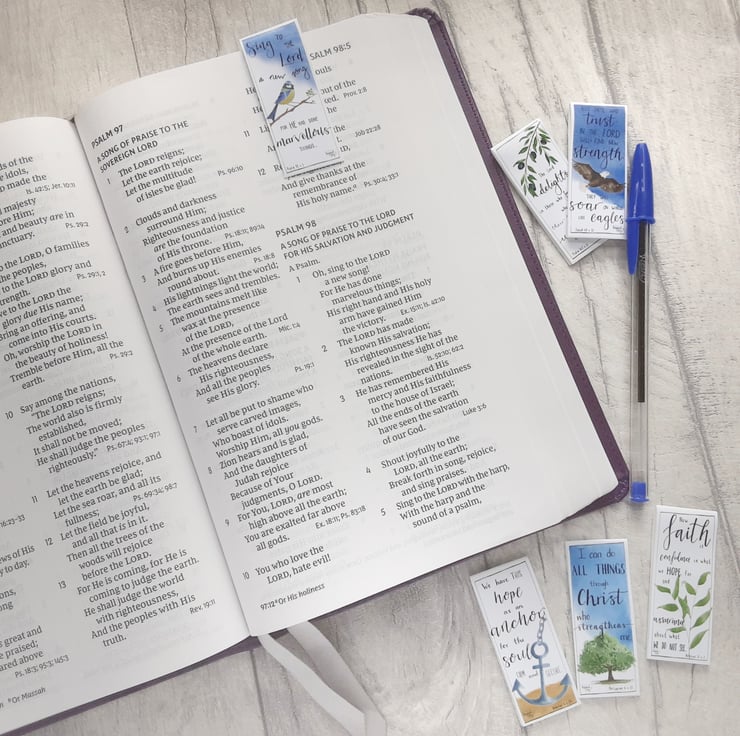 ds of the
idols,
made the
Is. 42:5; Jer. 10:11
majesty
ore Him;
and beauty are in
nctuary.
Ps. 29:2
to the LORD, O families
the peoples,
to the LORD glory and
rength.
Ps. 29:1, 2
ve to the LORD the
glory due His name;
ring an offering, and
come into His courts.
Oh, worship the LORD in
the beauty of holiness!
Tremble before Him, all the
earth.
Ps. 29:2
10 Say among the nations,
"The LORD reigns;
The world also is firmly
established,
It shall not be moved;
He shall judge the peoples
righteously."
Ps. 67:4; 93:1; 97:1
11 Let the heavens rejoice, and
let the earth be glad;
Let the sea roar, and all its
fullness;
Ps. 69:34; 98:7
12 Let the field be joyful,
and all that is in it.
Then all the trees of the
woods will rejoice
before the LORD.
13 For He is coming, for He is
coming to judge the earth.
He shall judge the world
with righteousness,
And the peoples with His
truth.
Rev. 19:11
16:23-33
ews of His
to day.
ons,
ng
s great and
e praised;
ared above
Ps. 18:3; 95:3; 145:3
Or Massah
PSALM 97
A SONG OF PRAISE TO THE
SOVEREIGN LORD
1 The LORD reigns;
Let the earth rejoice;
Let the multitude
of isles be glad!
Ps. 96:10
2 Clouds and darkness
surround Him;
Righteousness and justice
are the foundation
of His throne.
Ps. 18:11; 89:14
3 A fire goes before Him,
And burns up His enemies
round about.
Ps. 18:8
4 His lightnings light the world;
The earth sees and trembles.
5 The mountains melt like
wax at the presence
of the LORD,
At the presence of the Lord
of the whole earth.
Mic. 1:4
6 The heavens declare
His righteousness,
And all the peoples
see His glory.
Ps. 19:1
7 Let all be put to shame who
serve carved images,
who boast of idols.
Worship Him, all you gods.
8 Zion hears and is glad,
And the daughters of
Judah rejoice
Because of Your
judgments, O LORD.
9 For You, LORD, are most
high above all the earth;
You are exalted far above
all gods.
Ex. 18:11; Ps. 83:18
10 You who love the
LORD, hate evil!
97:12 Or His holiness
SALM 98:5
He
ouls
He
out of the
ked.
Prov. 2:8
11 Li
the
Job 22:28
12 Re
And give thanks at the
remembrance of
His holy name.
Ps. 30:4; 33:1
PSALM 98
A SONG OF PRAISE TO THE LORD
FOR HIS SALVATION AND JUDGMENT
A Psalm.
1 Oh, sing to the LORD
a new song!
For He has done
marvelous things;
His right hand and His holy
arm have gained Him
the victory.
Ex. 15:11; Is. 42:10
2 The LORD has made
known His salvation;
His righteousness He has
revealed in the sight of the
nations.
Is. 52:10; 62:2
3 He has remembered His
mercy and His faithfulness
to the house of Israel;
All the ends of the earth
have seen the salvation
of our God.
Luke 3:6
4 Shout joyfully to the
LORD, all the earth;
Break forth in song, rejoice,
and sing praises.
5 Sing to the LORD with the harp,
With the harp and the
sound of a psalm,
Sing TO
THE
Lord
a new song
FOR HE HAS DONE
marvellous
THINGS
delights
trust
IN THE LORD
WILL FIND NEW
strength
THEY WILL
soar ON WINGS
LIKE eagles
We have THIS
hope
as an
anchor
for the
soul
FIRM and SECURE
I can do
ALL THINGS
through
Christ
who
strengthens
me
Now
faith
is
confidence in what
we HOPE for
and
assurance
about what
WE DO NOT SEE